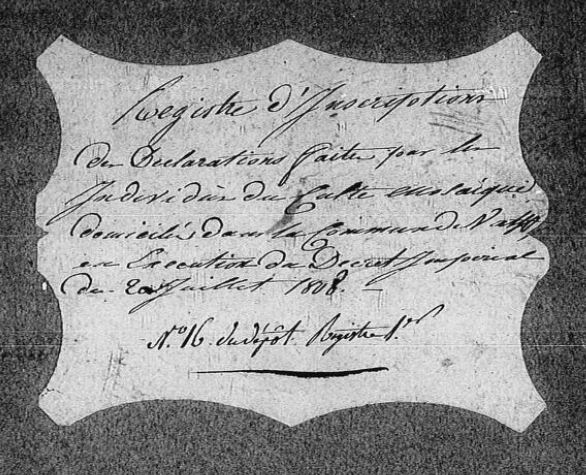 Registre d'Inscriptions
des Declarations faites par les
Individus du Culte mosaïque
domiciliés dans la Commune de
en Execution du Decret Imperial
du 20 Juillet 1808. —
N.º 16 du dépôt. Registre 1.er